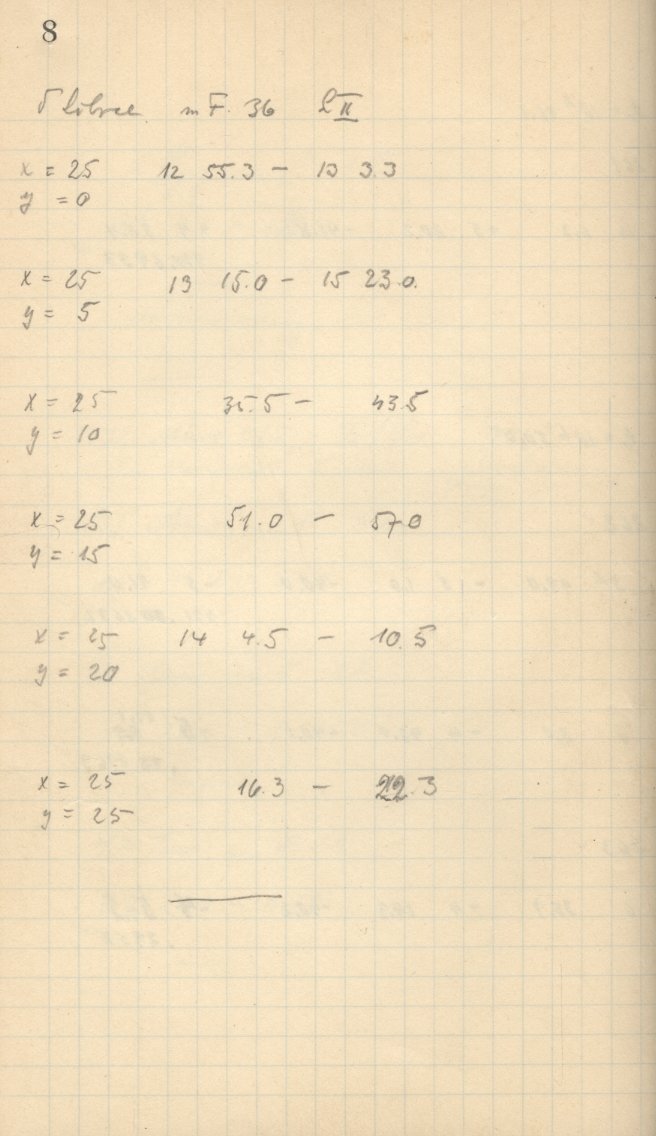 8
δ Librae m F. 36 L II
x = 25 12 55.3 — 13 3.3
y = 0
x = 25 13 15.0 — 15 23.0.
y = 5
x = 25 35.5 — 43.5
y = 10
x = 25 51.0 — 57.0
y = 15
x = 25 14 4.5 — 10.5
y = 20
x = 25 16.3 — 22.3
y = 25